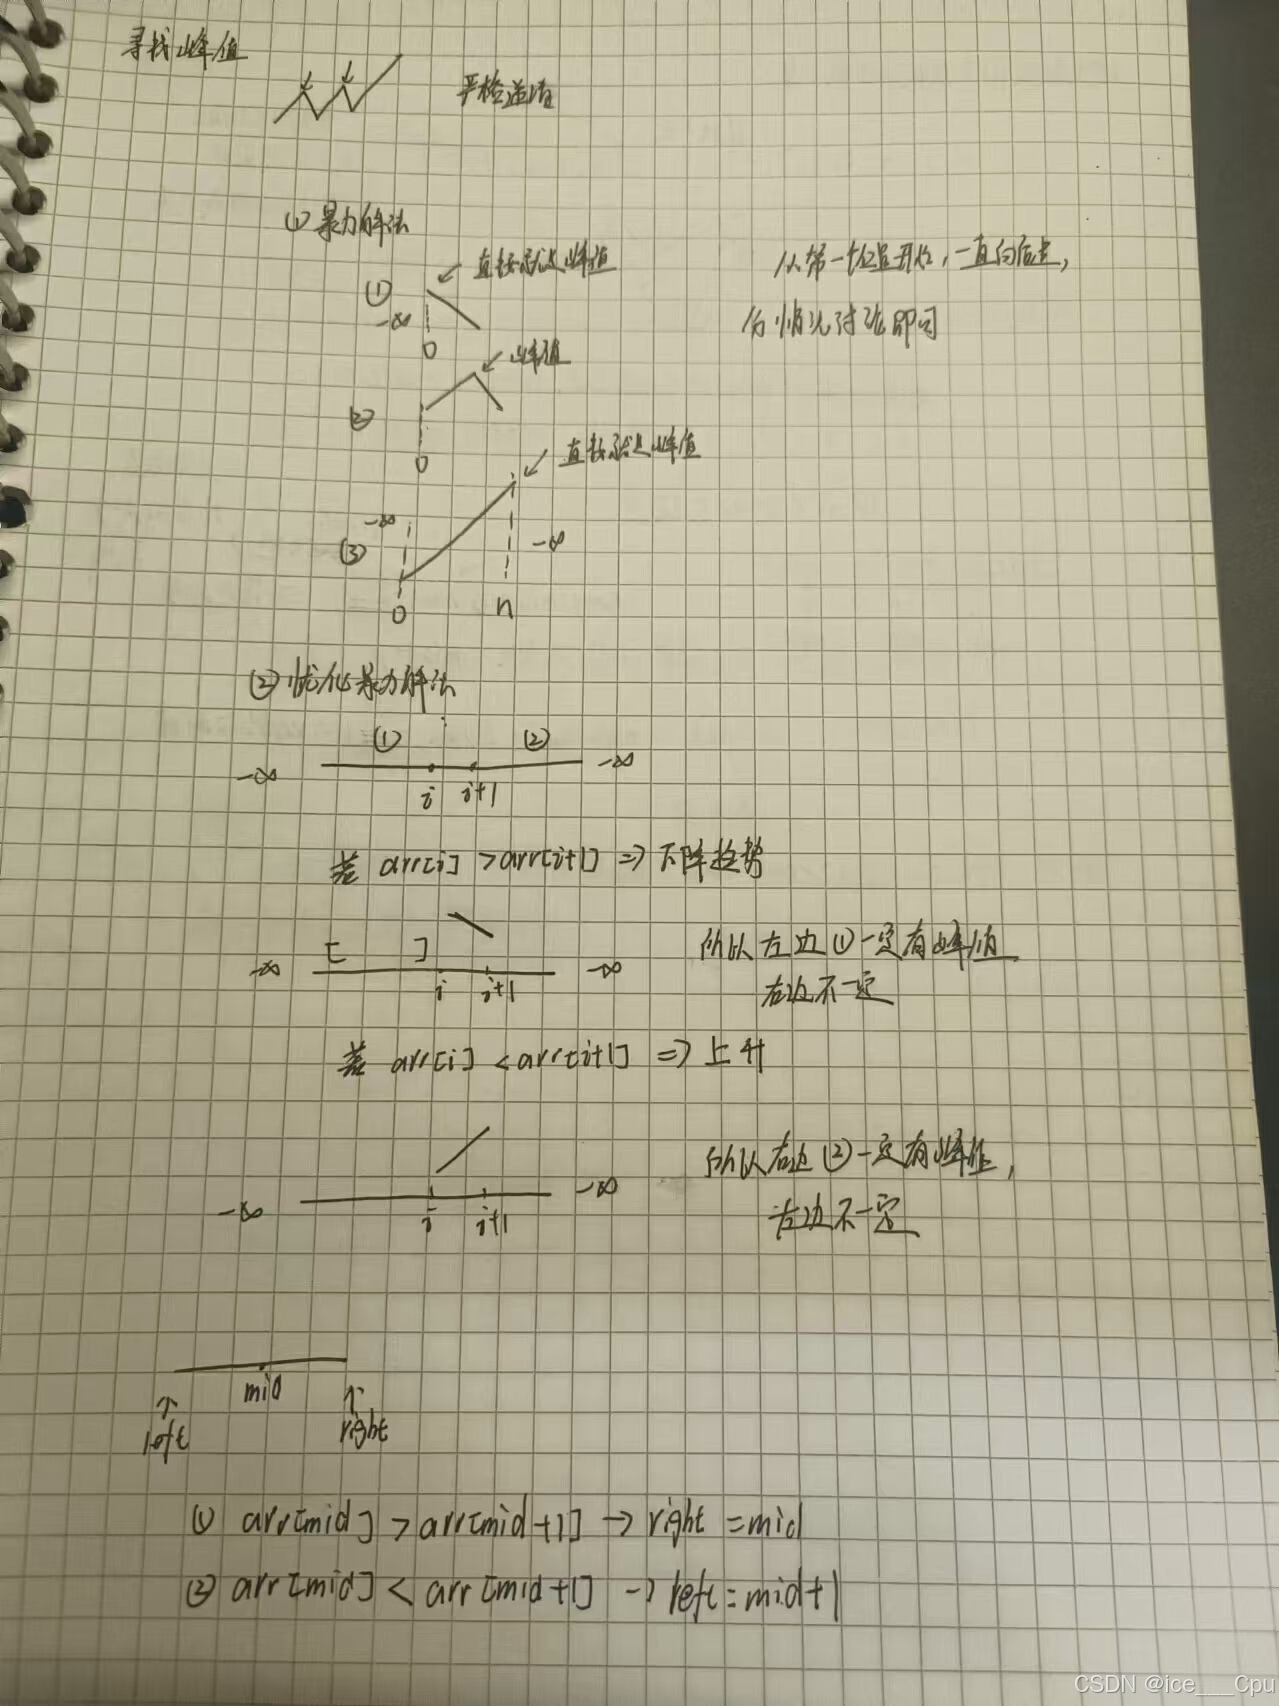 寻找峰值
严格递增
① 暴力解法
① 直接就是峰值
从第一个位置开始，一直向后走，
-∞
分情况讨论即可
0
峰值
②
0
直接就是峰值
-∞
③ -∞
0 n
② 优化暴力解法
① ②
-∞ -∞
i i+1
若 arr[i] > arr[i+1] => 下降趋势
[ ]
所以左边①一定有峰值
-∞ -∞
i i+1
右边不一定
若 arr[i] < arr[i+1] => 上升
所以右边②一定有峰值，
-∞ -∞
i i+1
左边不一定
mid
left right
① arr[mid] > arr[mid+1] → right = mid
② arr[mid] < arr[mid+1] → left = mid+1
CSDN @ice___Cpu